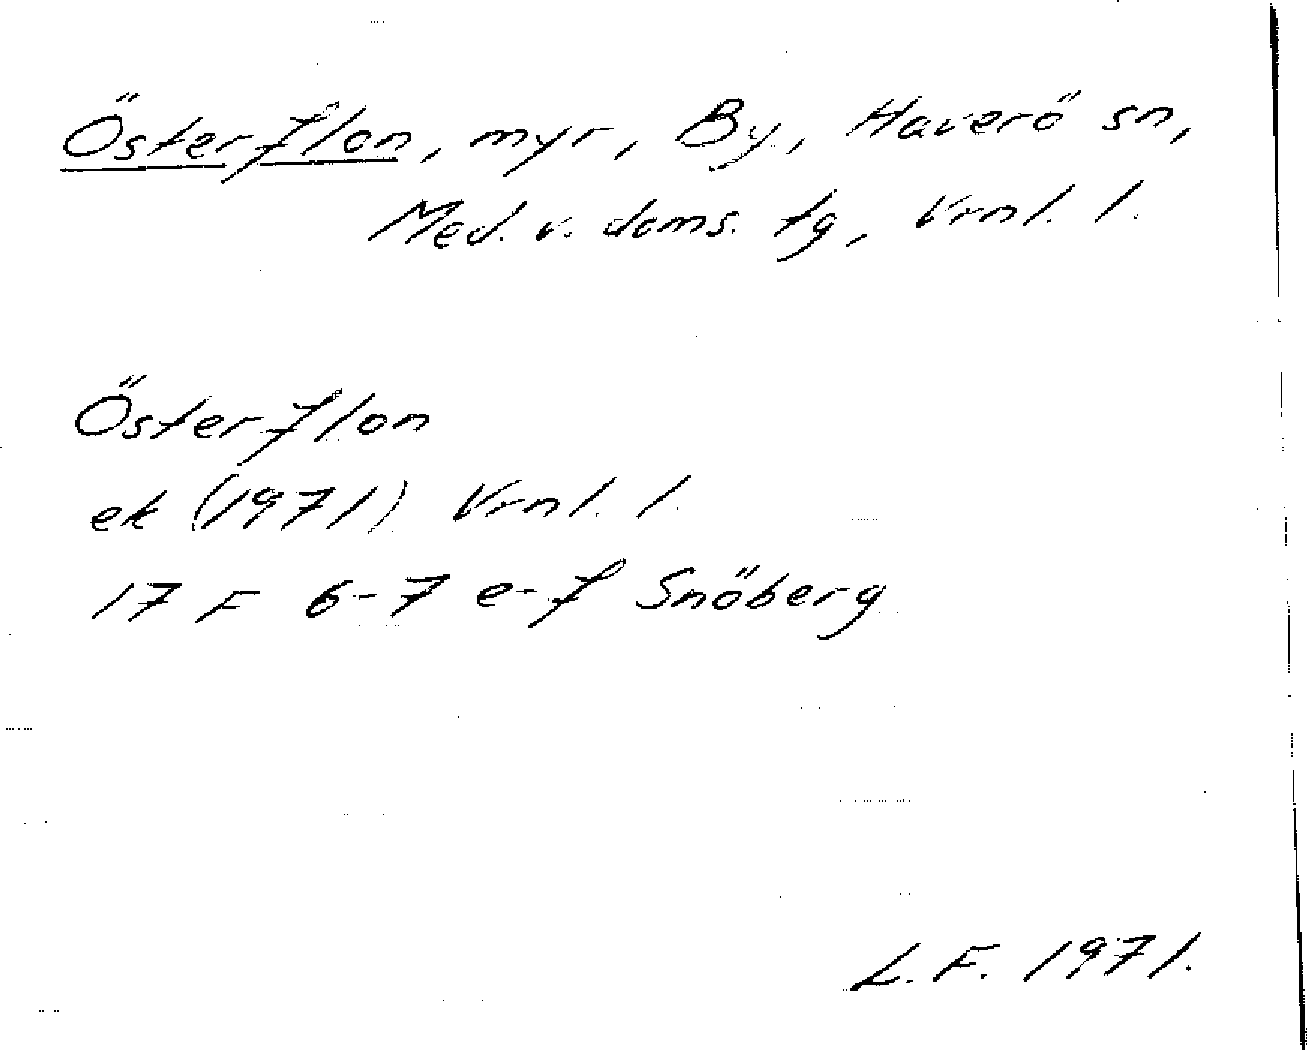 Österflon, myr, By, Haverö sn,
Med. v. doms. tg, Vrnl. l.
Österflon
ek (1971) Vrnl. l.
17 F 6-7 e-f Snöberg
L.F. 1971.